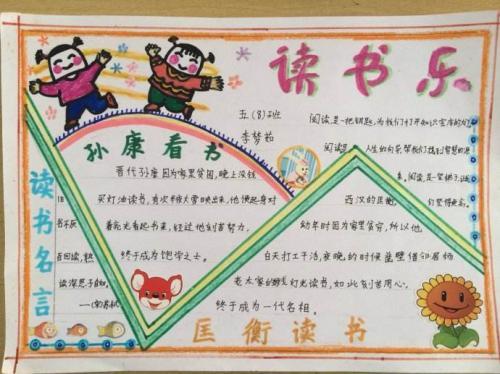 读书乐
五(8)班
李梦茹
阅读是一把钥匙,为我们打开知识宝库的门
阅读是
人生的向导,帮我们找到智慧的
阅读是一架梯子
孙康看书
晋代孙康因为家里贫困,晚上没钱
买灯油读书,有次半夜大雪映出来,他便起身对
着亮光看起书来,经过他刻苦努力,
终于成为饱学之士。
读书名言
旧
书不厌
百回读,熟
读深思子自知。
——(宋)苏轼
西汉的匡衡,
幼年时因为家里贫穷,所以他
白天打工干活,夜晚的时候凿壁借邻居杨
老太家的灯光读书,如此刻苦用心,
终于成为一代名相。
匡衡读书